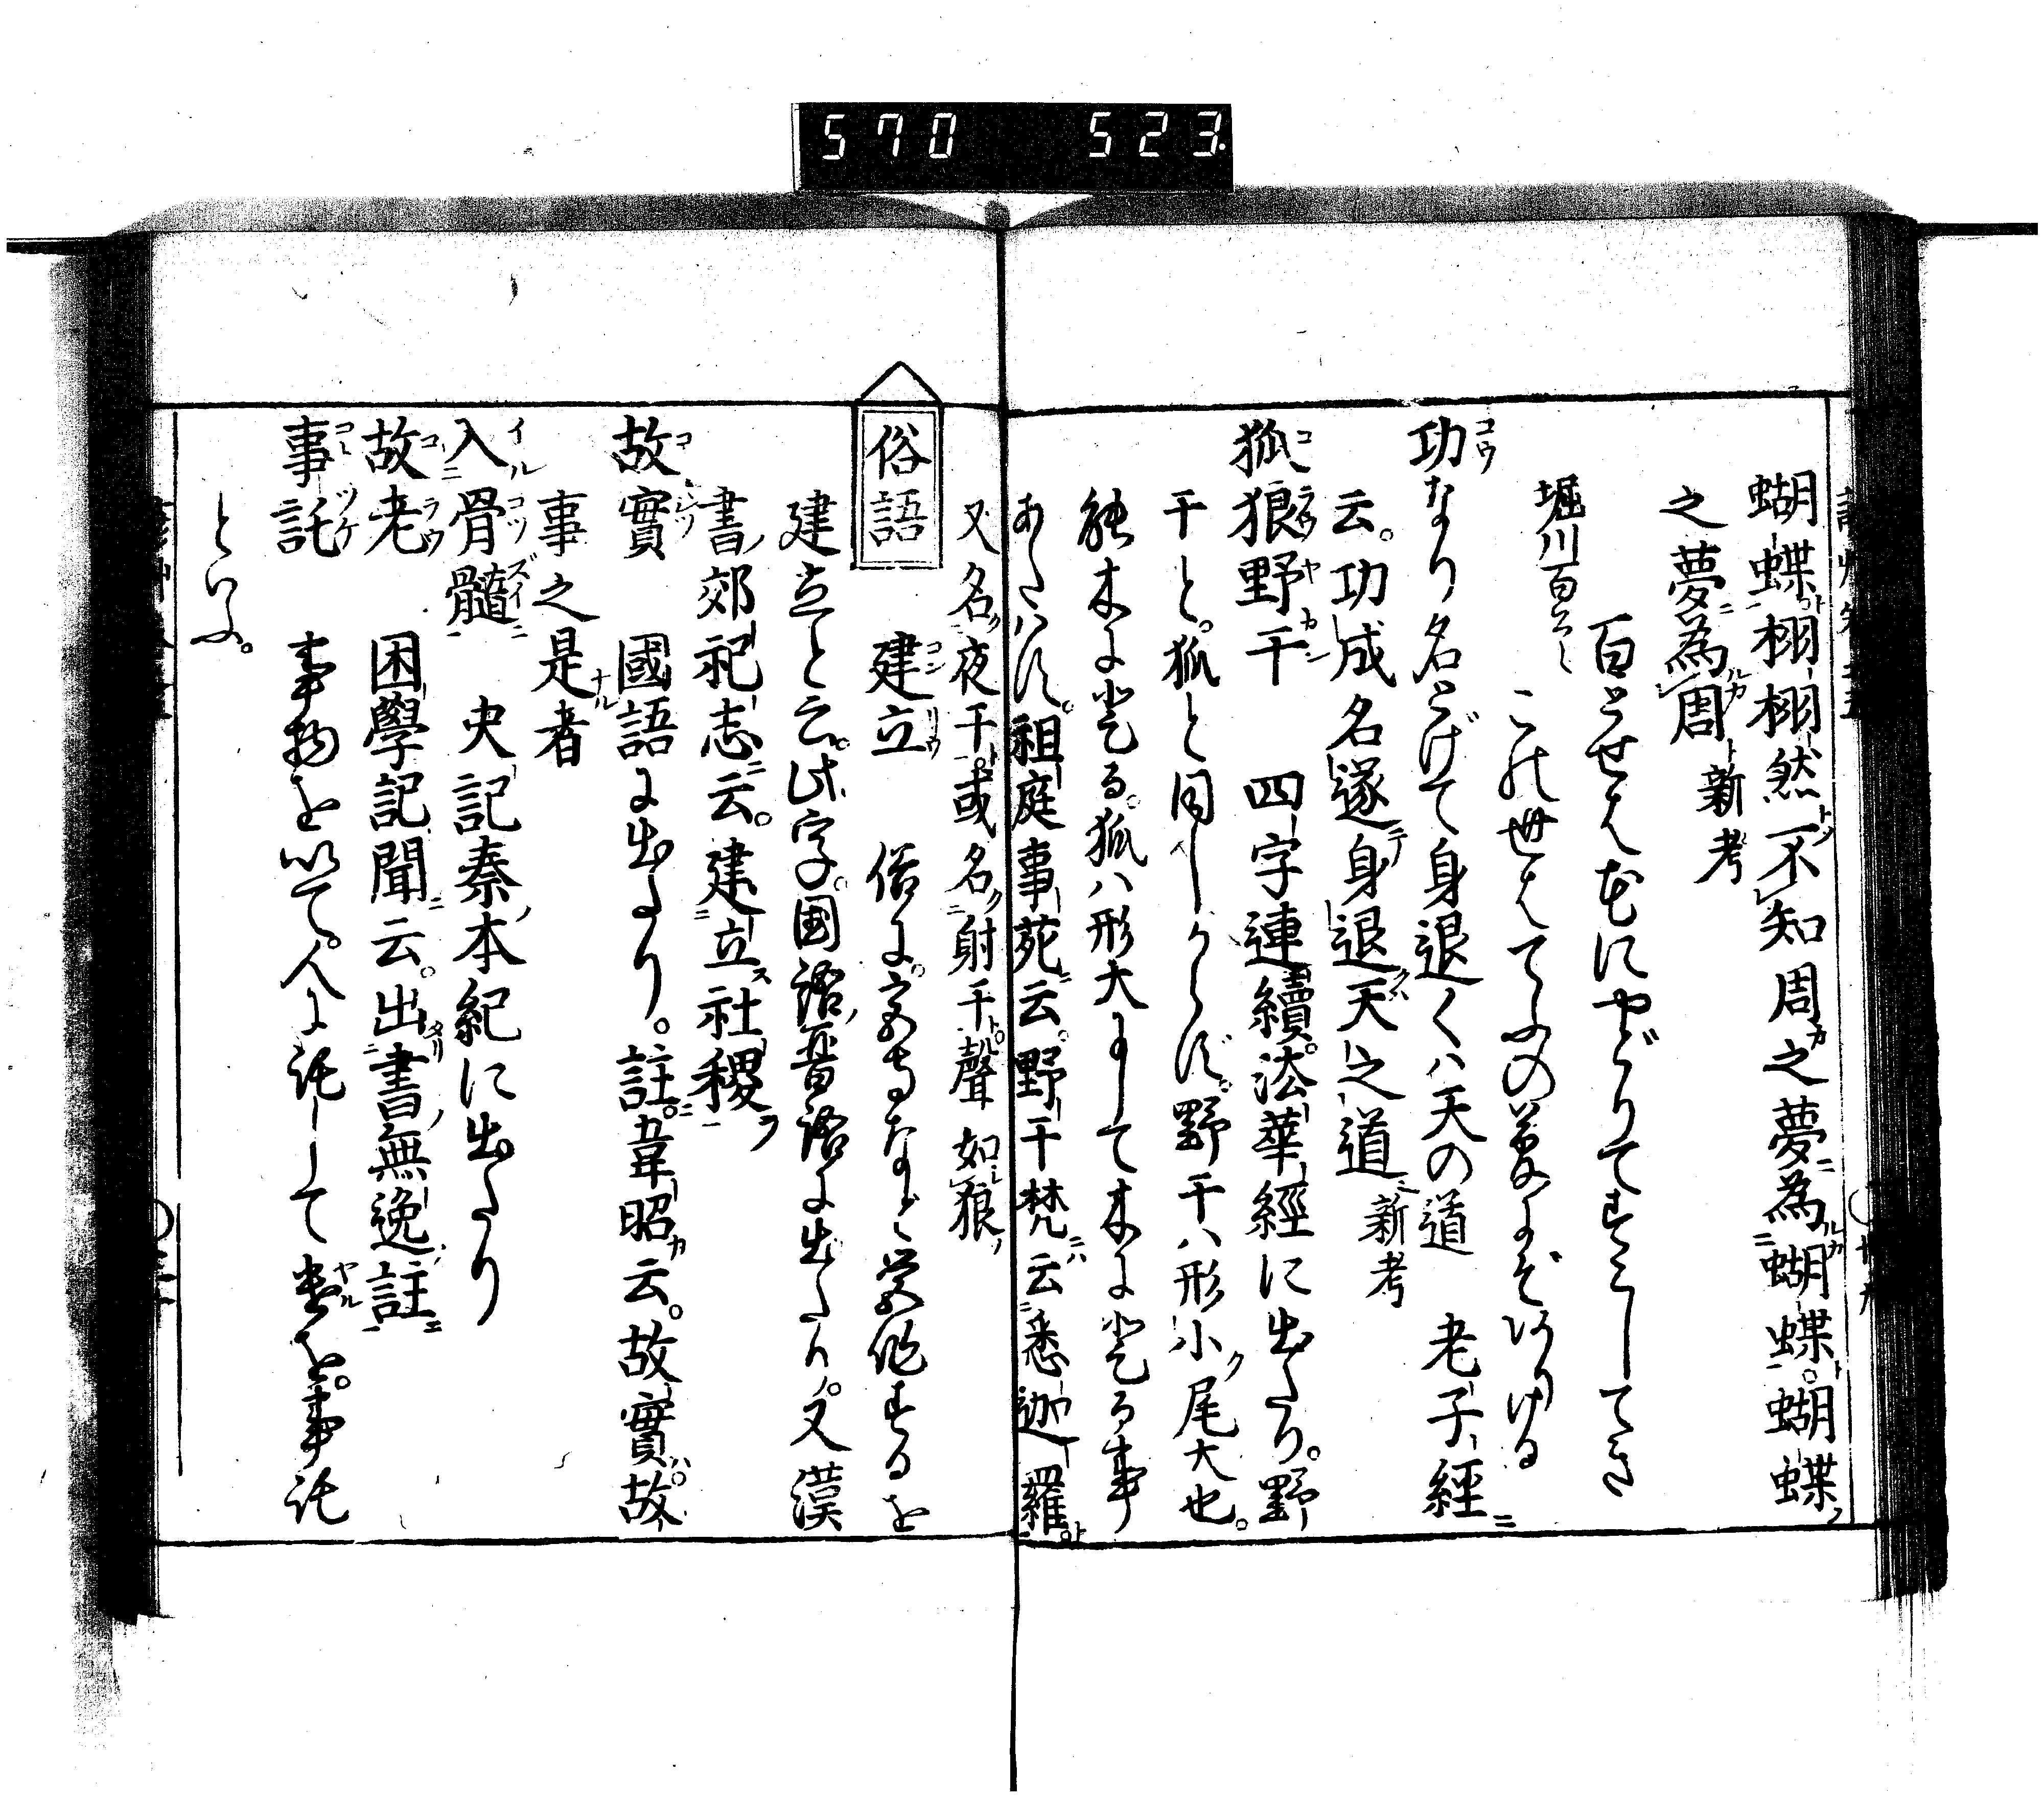 570 523
蝴蝶栩栩然不知周之夢為蝴蝶蝴蝶
之夢為周新考
百とせは花にやどりてすごしてき
堀川百首
この世はてふの夢にぞありける
功なり名とげて身退くハ天の道 老子經
云。功成名遂身退天之道新考
狐狼野干 四字連續法華經に出たり。野
干と。狐と同じからず。野干ハ形小尾大也。
能木に登る。狐ハ形大にして木に登る事
あたハず。祖庭事苑云。野干梵云悉迦羅
又名夜干。或名射干。聲如狼
俗語 建立 俗に。宮寺など営作するを
建立と云。此字。国語晋語に出たり。又漢
書郊祀志云。建立社稷
故實 國語に出たり。註。韋昭云。故實故
事之是者
入骨髓 史記秦本紀に出たり
故老 困學記聞云。出書無逸註
事託 事物を以て。人に託して遣を。事託
といふ。